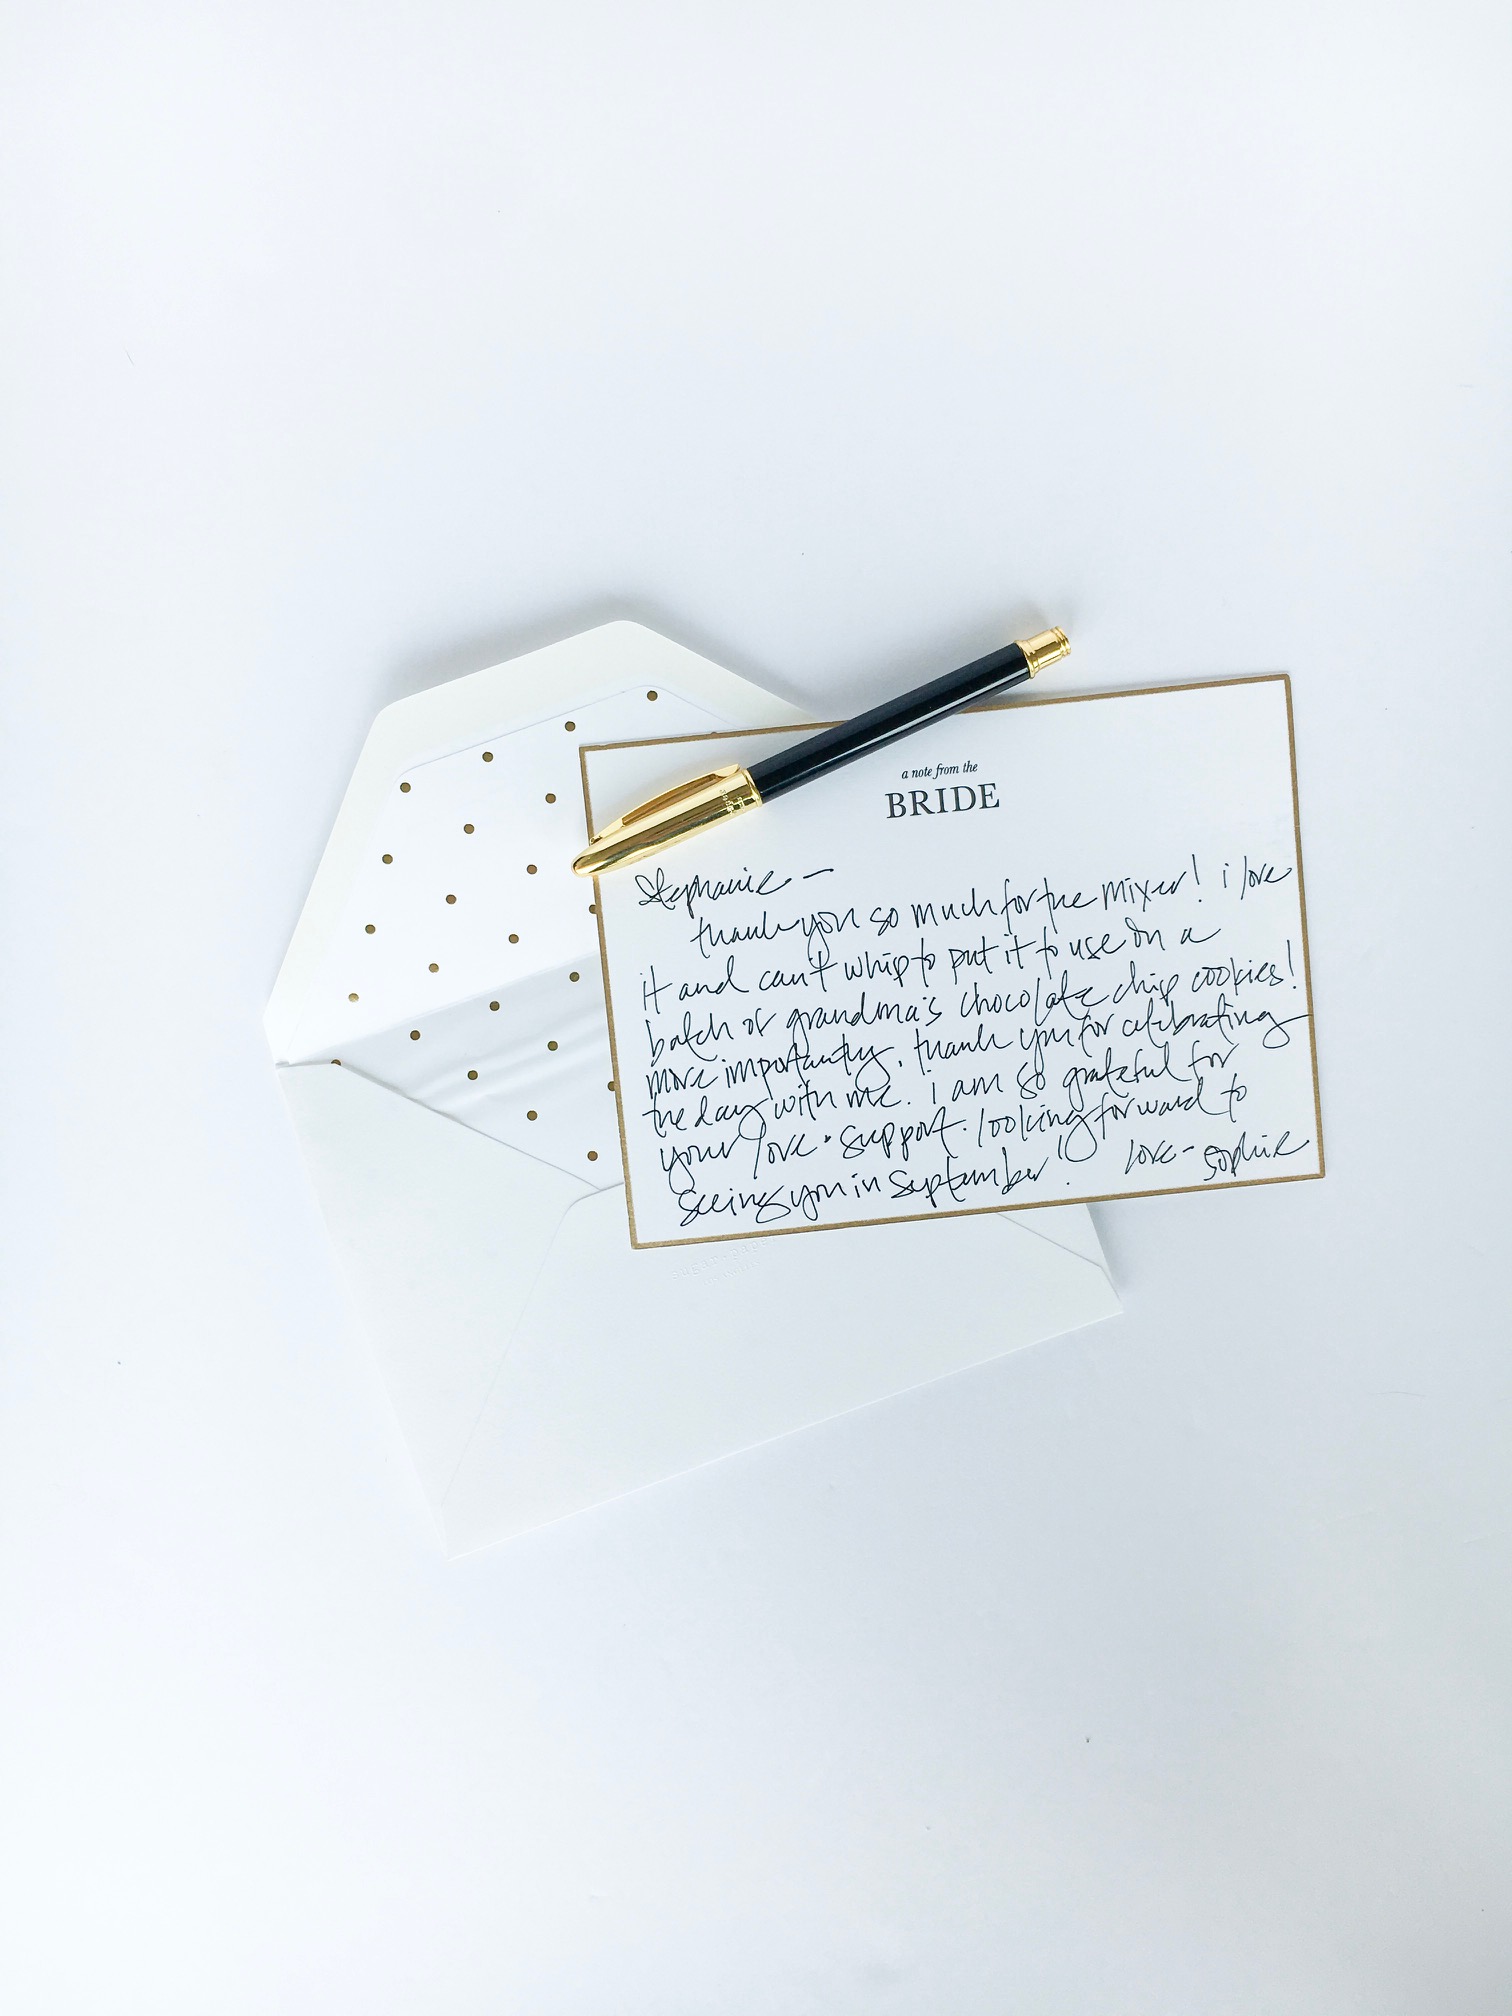 a note from the
BRIDE
Stephanie –
thank you so much for the mixer! i love
it and can't whip to put it to use on a
batch of grandma's chocolate chip cookies!
more importantly, thank you for celebrating
the day with me. i am so grateful for
your love + support. looking forward to
seeing you in September! love –
Sophie
sugar paper